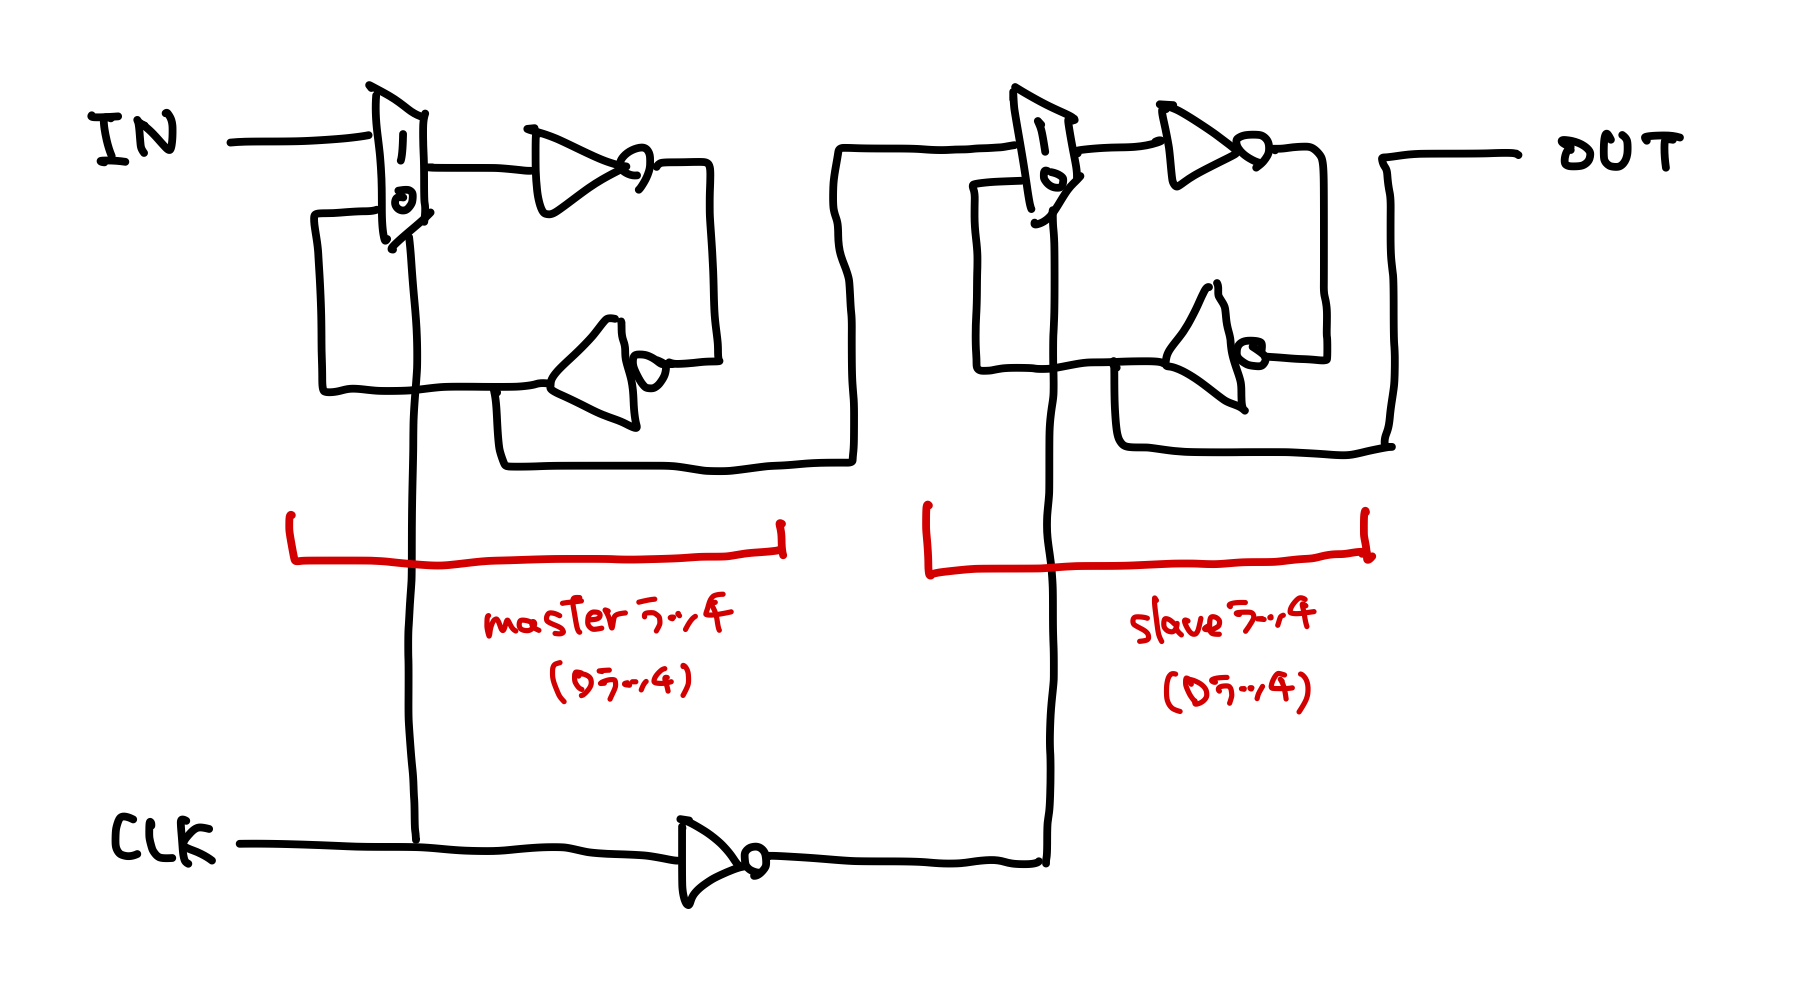 IN
1
0
1
0
OUT
masterラッチ
(Dラッチ)
slaveラッチ
(Dラッチ)
CLK